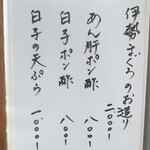 伊勢まぐろのお造り
二〇〇〇ー
あん肝ポン酢
八〇〇ー
白子ポン酢
八〇〇ー
白子の天ぷら
一〇〇〇ー